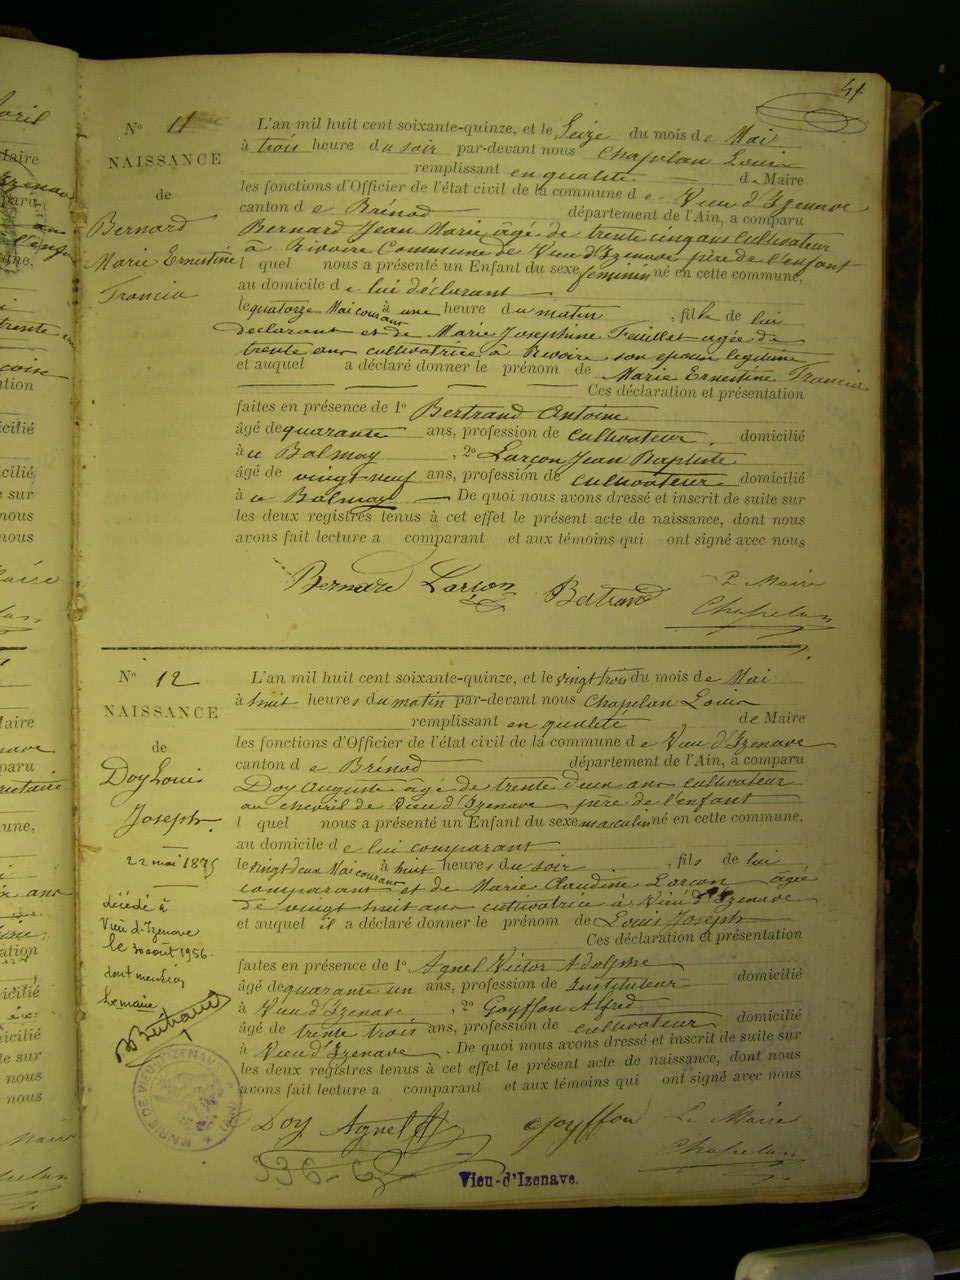 41
N° 11
NAISSANCE
de
Bernard
Marie Ernestine
Francia
L'an mil huit cent soixante-quinze, et le Seize du mois de Mai
à trois heure du soir par-devant nous Chapelan Louis
remplissant en qualité de Maire
les fonctions d'Officier de l'état civil de la commune de Vieu d'Izenave
canton de Brénod département de l'Ain, a comparu
Bernard Jean Marie âgé de trente cinq ans cultivateur
à Rivoire Commune de Vieu d'Izenave père de l'enfant
l quel nous a présenté un Enfant du sexe féminin né en cette commune,
au domicile de lui déclarant
le quatorze Mai courant à une heure du matin, fille de lui
déclarant et de Marie Josephine Feuillet agée de
trente ans cultivatrice à Rivoire son épouse légitime
et auquel a déclaré donner le prénom de Marie Ernestine Francia
Ces déclaration et présentation
faites en présence de 1° Bertrand Antoine
âgé de quarante ans, profession de cultivateur, domicilié
à a Balmay, 2° Larçon Jean Baptiste
âgé de vingt neuf ans, profession de cultivateur domicilié
à a Balmay De quoi nous avons dressé et inscrit de suite sur
les deux registres tenus à cet effet le présent acte de naissance, dont nous
avons fait lecture a comparant et aux témoins qui ont signé avec nous
Bernard Larçon Bertrand
Maire
Chapelan
N° 12
NAISSANCE
de
Doy Louis
Joseph
22 mai 1875
décédé à
Vieu-d'Izenave
le 30 août 1956.
dont mention
Le maire
Bertrand
MAIRIE DE VIEU-D'IZENAVE (AIN)
L'an mil huit cent soixante-quinze, et le vingt trois du mois de Mai
à huit heures du matin par-devant nous Chapelan Louis
remplissant en qualité de Maire
les fonctions d'Officier de l'état civil de la commune de Vieu d'Izenave
canton de Brénod département de l'Ain, a comparu
Doy Auguste âgé de trente deux ans cultivateur
au chevril de Vieu d'Izenave père de l'enfant
l quel nous a présenté un Enfant du sexe masculin né en cette commune,
au domicile de lui comparant
le vingt deux Mai courant à huit heures du soir, fils de lui
comparant et de Marie Claudine Larçon agée
de vingt huit ans cultivatrice à Vieu d'Izenave
et auquel il a déclaré donner le prénom de Louis Joseph
Ces déclaration et présentation
faites en présence de 1° Agnel Victor Adolphe
âgé de quarante un ans, profession de Instituteur domicilié
à Vieu d'Izenave, 2° Goyffon Alfred
âgé de trente trois ans, profession de cultivateur domicilié
à Vieu d'Izenave. De quoi nous avons dressé et inscrit de suite sur
les deux registres tenus à cet effet le présent acte de naissance, dont nous
avons fait lecture a comparant et aux témoins qui ont signé avec nous
Doy Agnel Goyffon Le Maire
Chapelan
Vieu-d'Izenave.